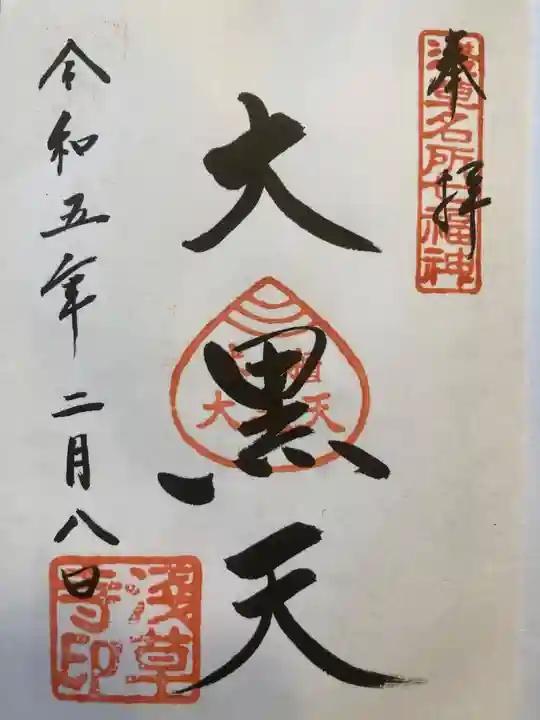 奉拝
浅草名所七福神
大黒天
大 天
令和五年二月八日
浅草寺印